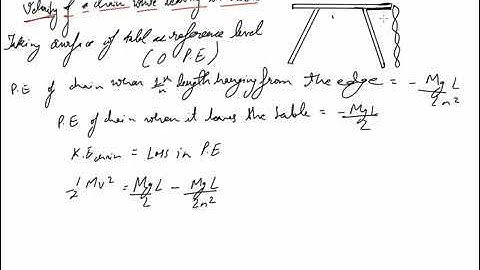 Velocity of a chain while leaving the table
Taking surface of tabl as reference level
(0 P.E)
P.E of chain when 1/n th length hanging from the edge = - MgL/2n²
P.E of chain when it leaves the table = - MgL/2
K.E chain = Loss in P.E
1/2 Mv² = MgL/2 - MgL/2n²